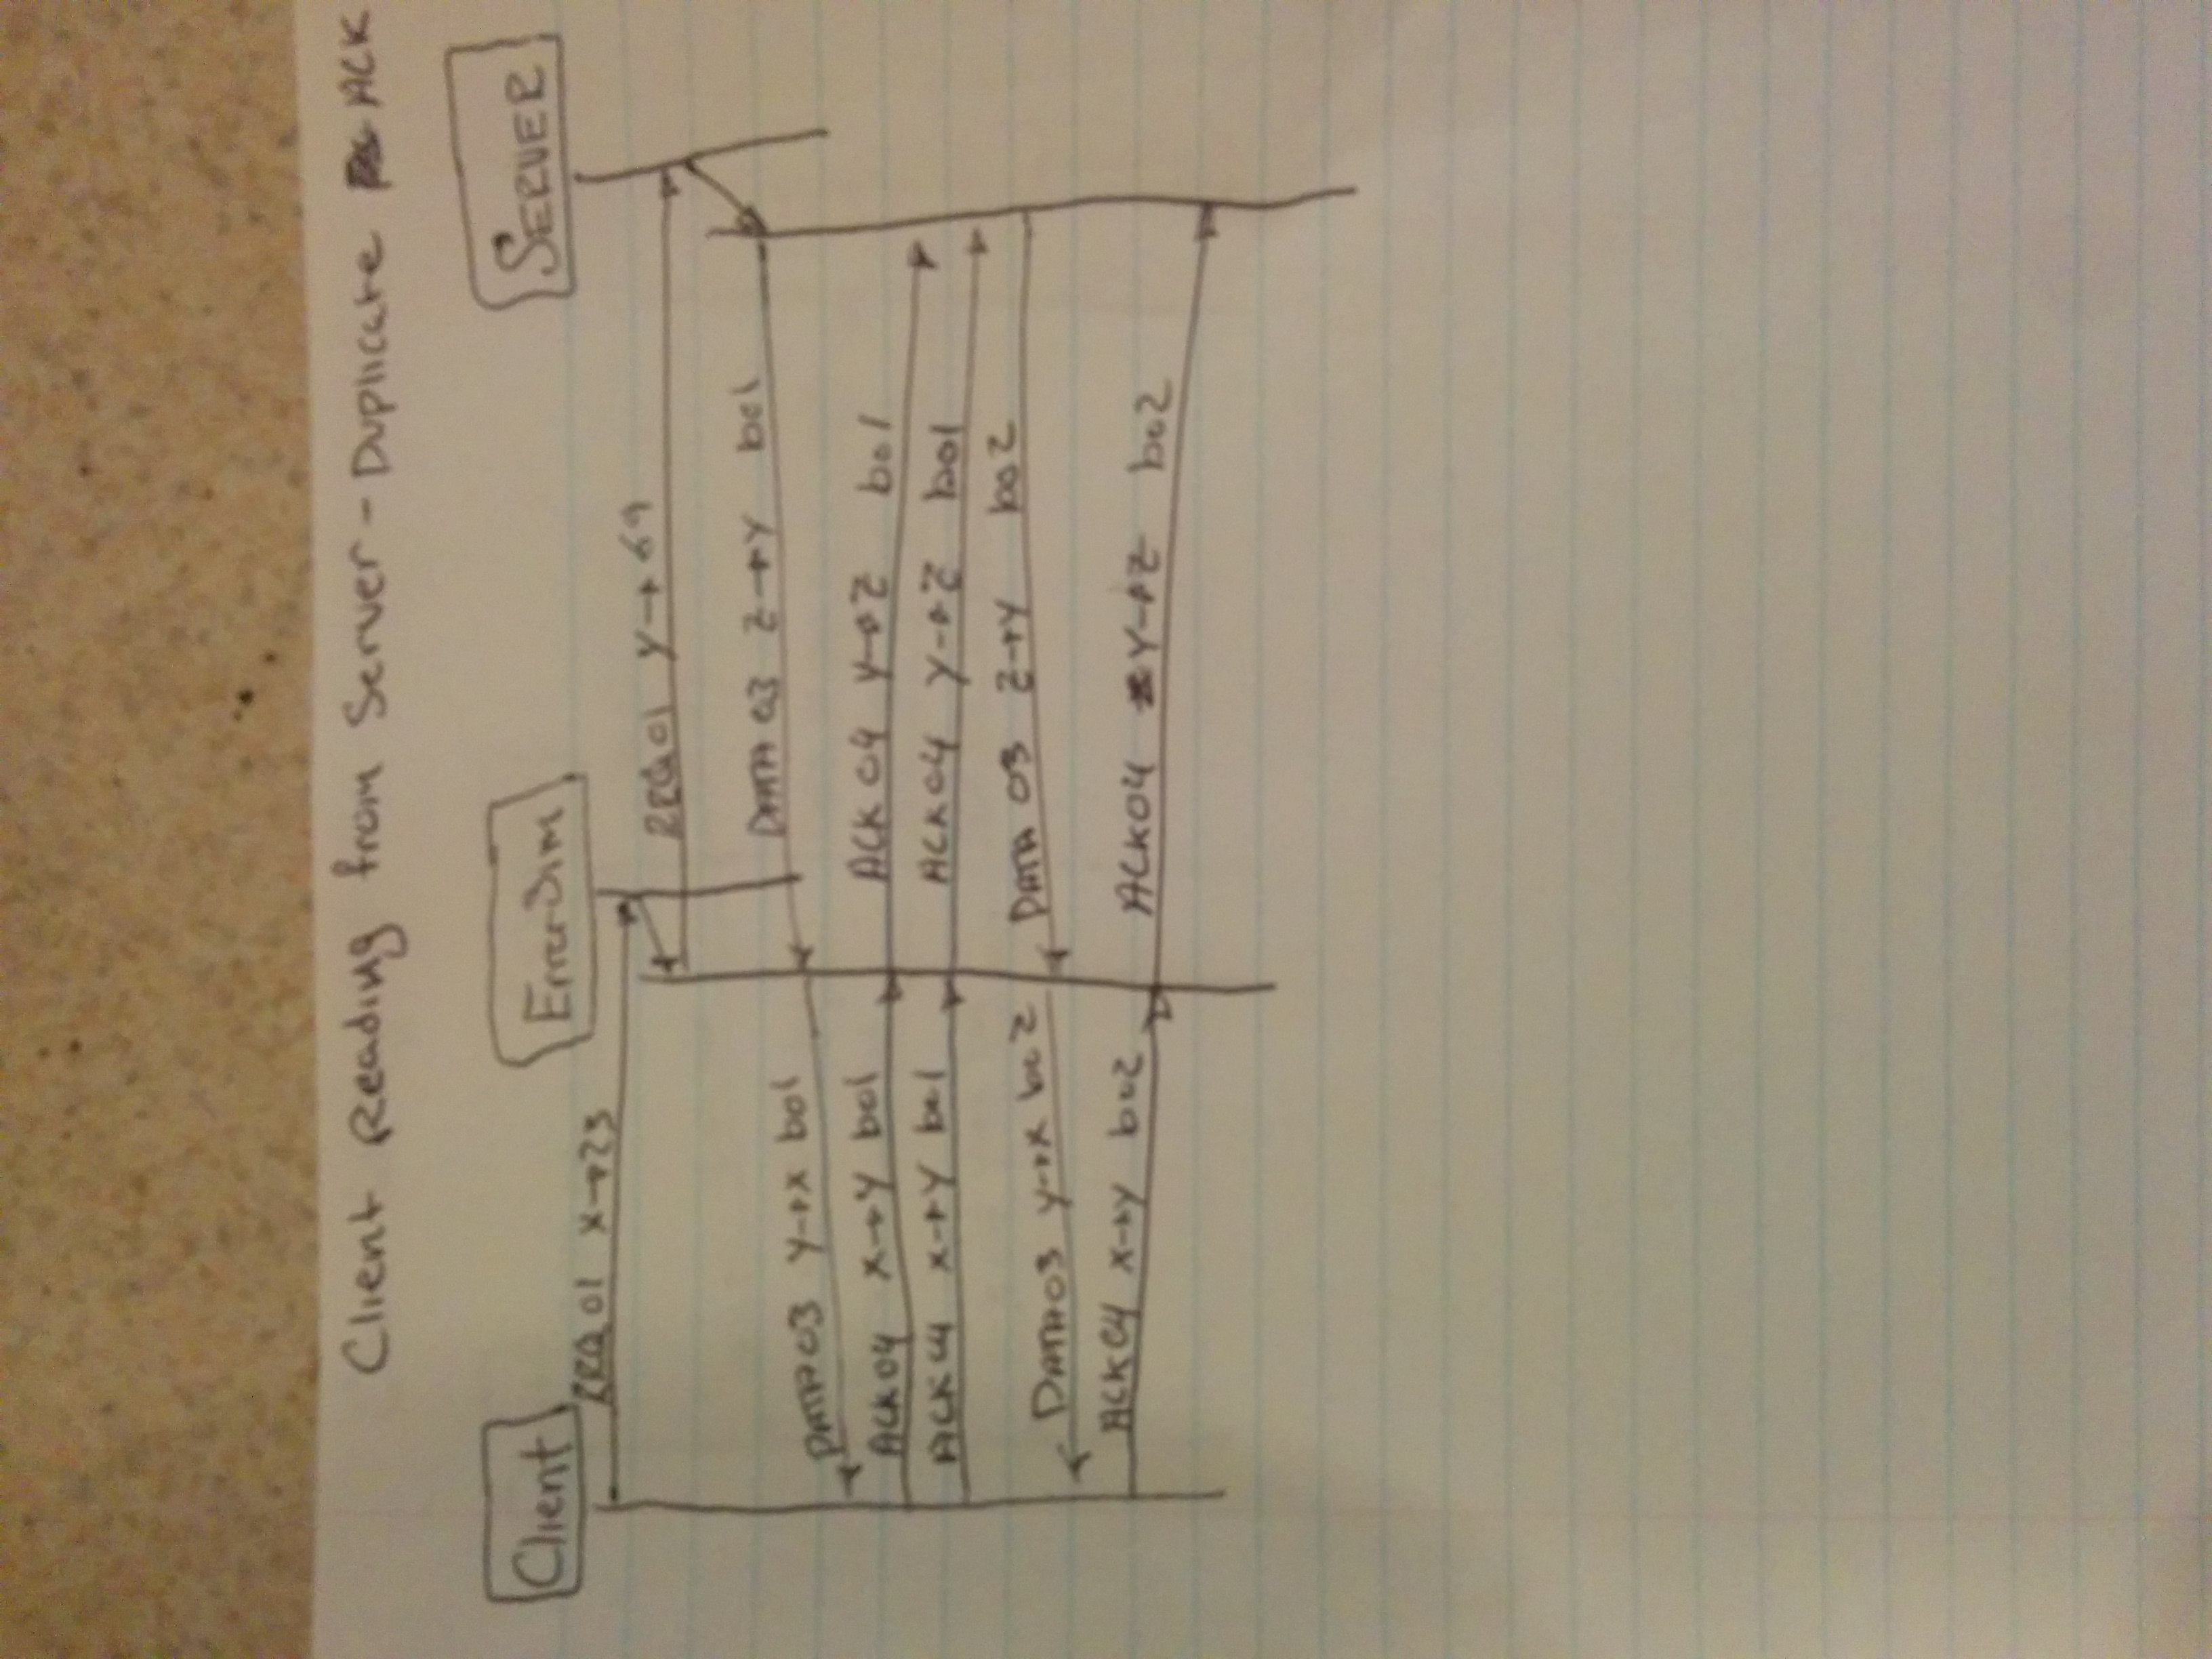 Client Reading from Server - Duplicate ACK
Client Error Sim SERVER
RRQ 01 x→23
RRQ 01 y→69
DATA 03 z→y b01
DATA 03 y→x b01
ACK 04 x→y b01
ACK 04 y→z b01
ACK 04 x→y b01
ACK 04 y→z b01
DATA 03 z→y b02
DATA 03 y→x b02
ACK 04 x→y b02
ACK 04 y→z b02